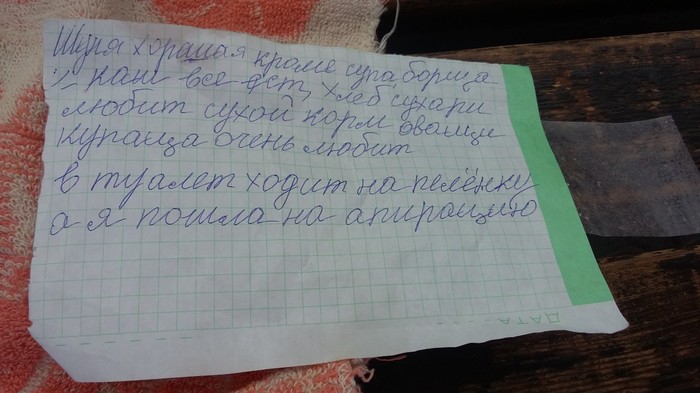 Шуня хорашая кроме супа борща
и каш все ест, хлеб сухари
любит сухой корм оващи
купаца очень любит
в туалет ходит на пелёнку
а я пошла на апирацию
ДАТА